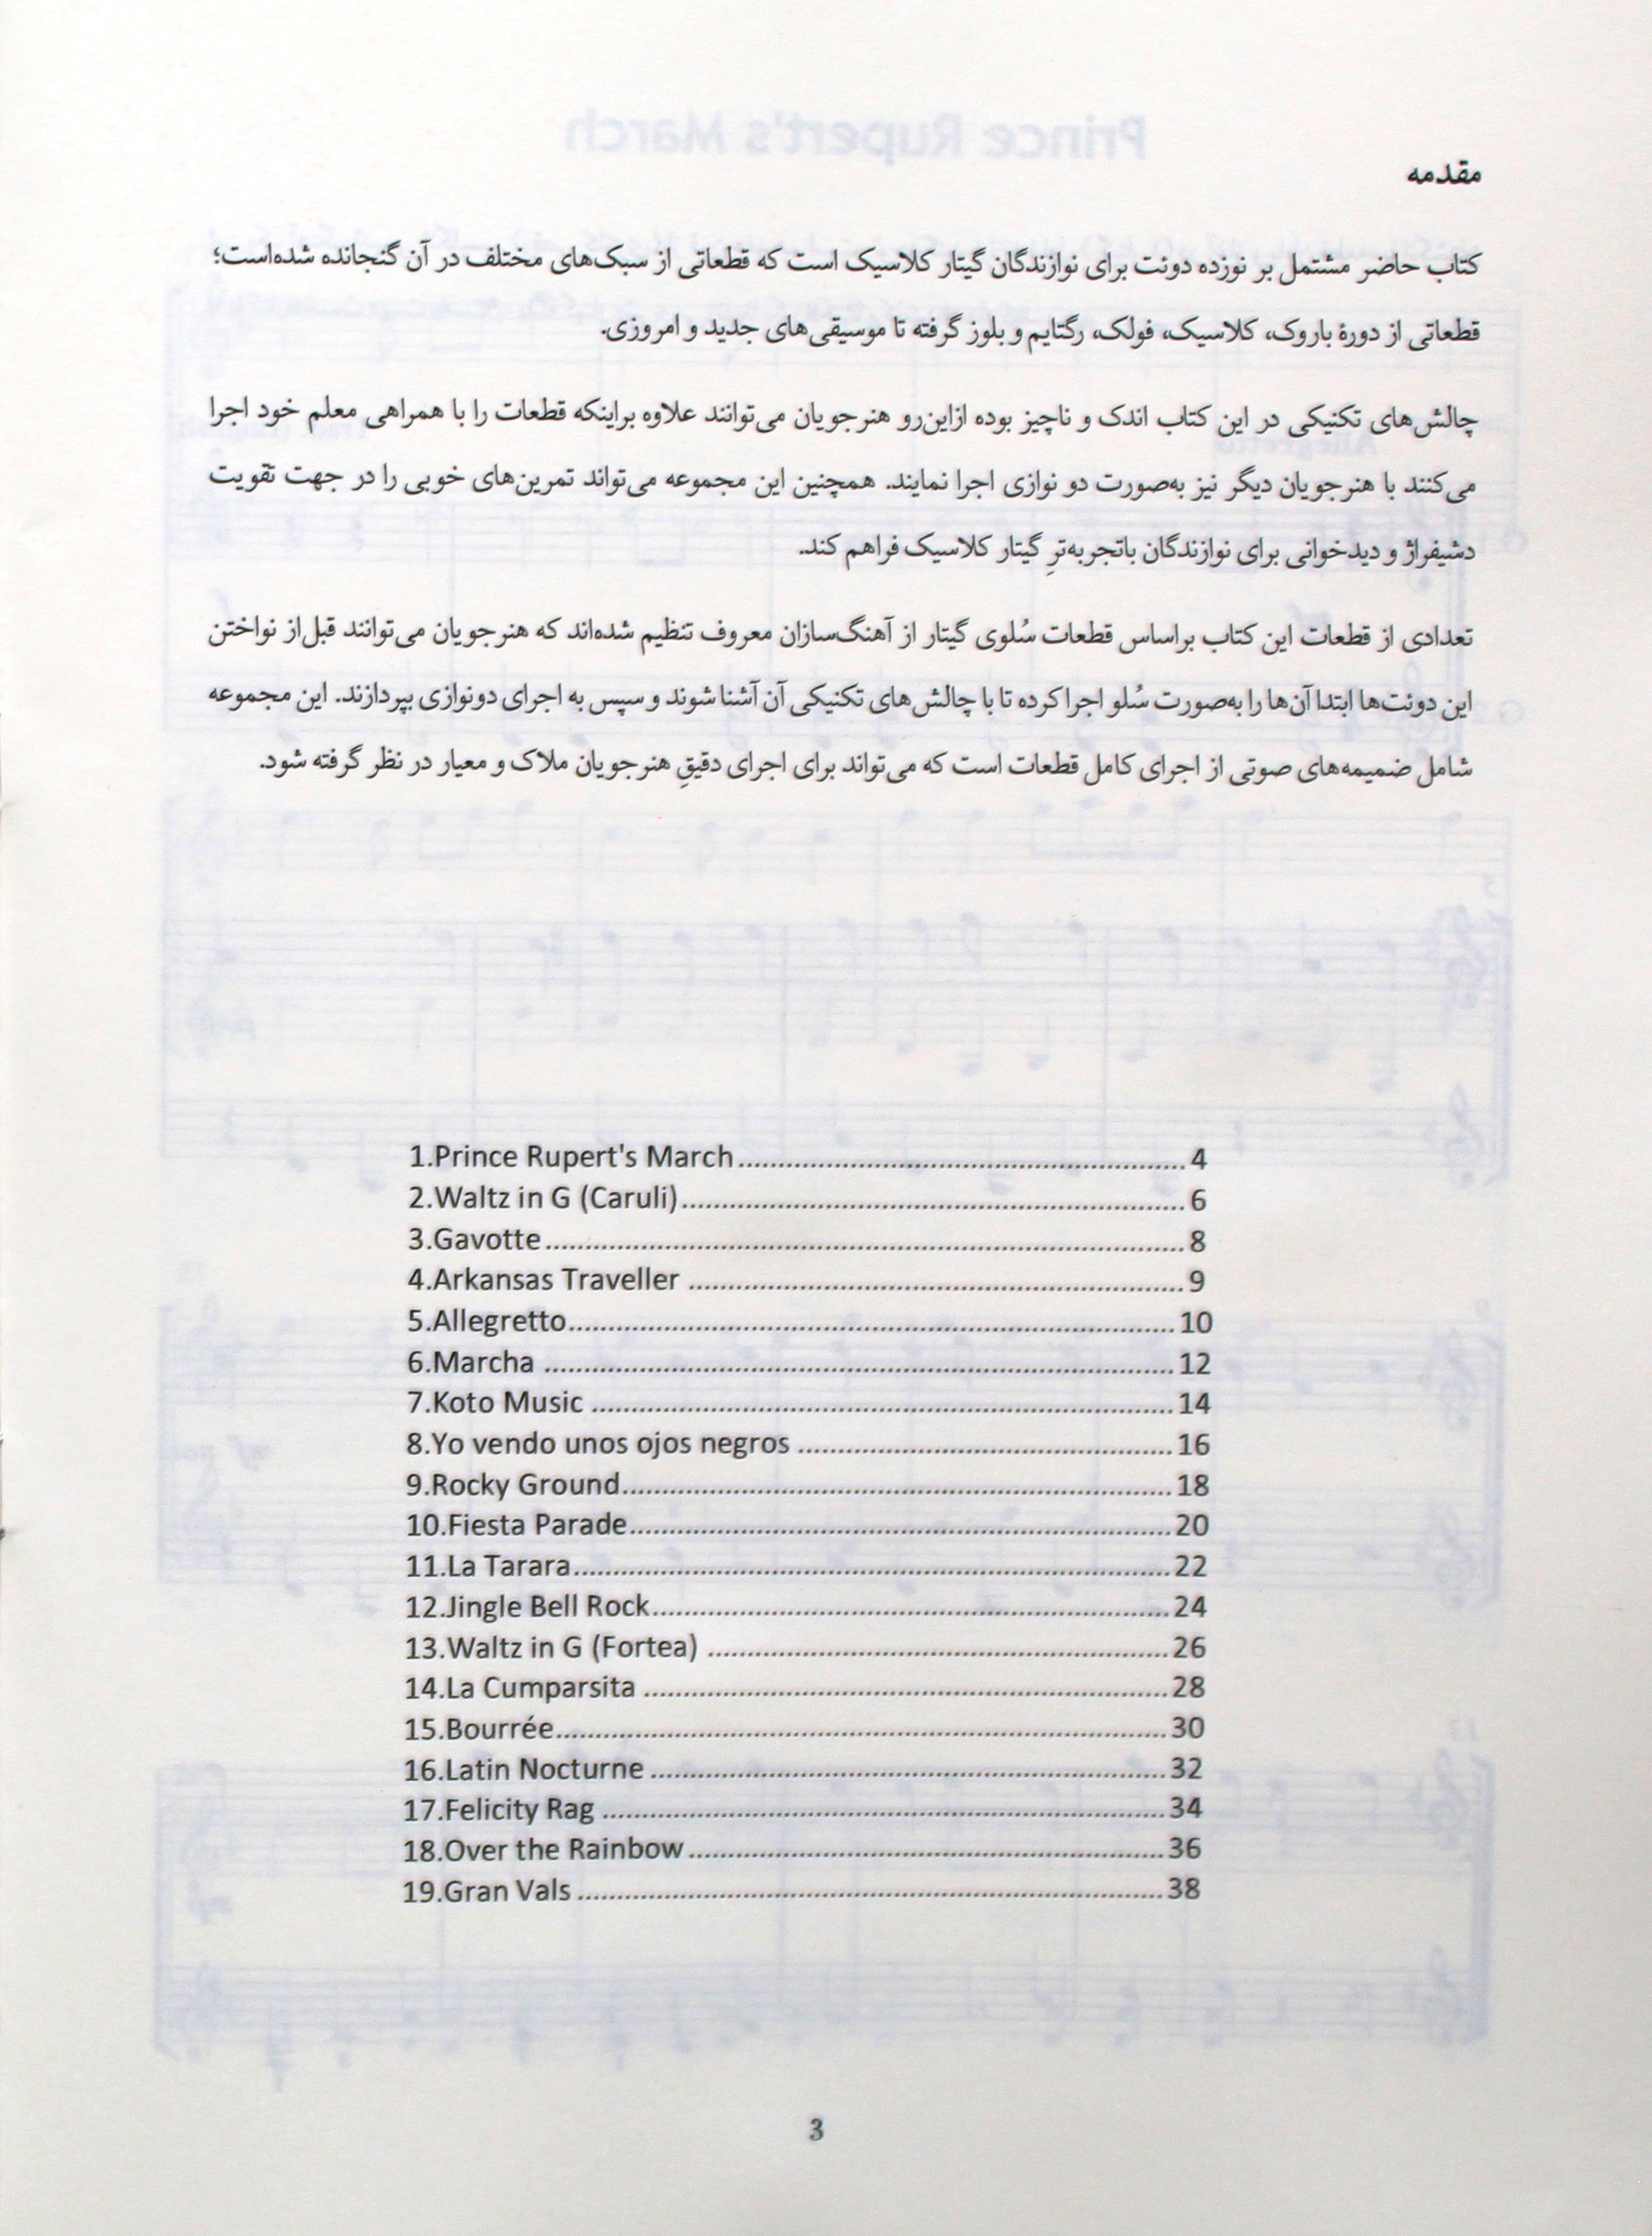 مقدمه
کتاب حاضر مشتمل بر نوزده دوئت برای نوازندگان گیتار کلاسیک است که قطعاتی از سبک‌های مختلف در آن گنجانده شده‌است؛
قطعاتی از دورهٔ باروک، کلاسیک، فولک، رگتایم و بلوز گرفته تا موسیقی‌های جدید و امروزی.
چالش‌های تکنیکی در این کتاب اندک و ناچیز بوده ازاین‌رو هنرجویان می‌توانند علاوه براینکه قطعات را با همراهی معلم خود اجرا
می‌کنند با هنرجویان دیگر نیز به‌صورت دو نوازی اجرا نمایند. همچنین این مجموعه می‌تواند تمرین‌های خوبی را در جهت تقویت
دشیفراژ و دیدخوانی برای نوازندگان باتجربه‌ترِ گیتار کلاسیک فراهم کند.
تعدادی از قطعات این کتاب براساس قطعات سُلوی گیتار از آهنگ‌سازان معروف تنظیم شده‌اند که هنرجویان می‌توانند قبل‌از نواختن
این دوئت‌ها ابتدا آن‌ها را به‌صورت سُلو اجرا کرده تا با چالش‌های تکنیکی آن آشنا شوند و سپس به اجرای دونوازی بپردازند. این مجموعه
شامل ضمیمه‌های صوتی از اجرای کامل قطعات است که می‌تواند برای اجرای دقیقِ هنرجویان ملاک و معیار در نظر گرفته شود.
1.Prince Rupert's March 4
2.Waltz in G (Caruli) 6
3.Gavotte 8
4.Arkansas Traveller 9
5.Allegretto 10
6.Marcha 12
7.Koto Music 14
8.Yo vendo unos ojos negros 16
9.Rocky Ground 18
10.Fiesta Parade 20
11.La Tarara 22
12.Jingle Bell Rock 24
13.Waltz in G (Fortea) 26
14.La Cumparsita 28
15.Bourrée 30
16.Latin Nocturne 32
17.Felicity Rag 34
18.Over the Rainbow 36
19.Gran Vals 38
3